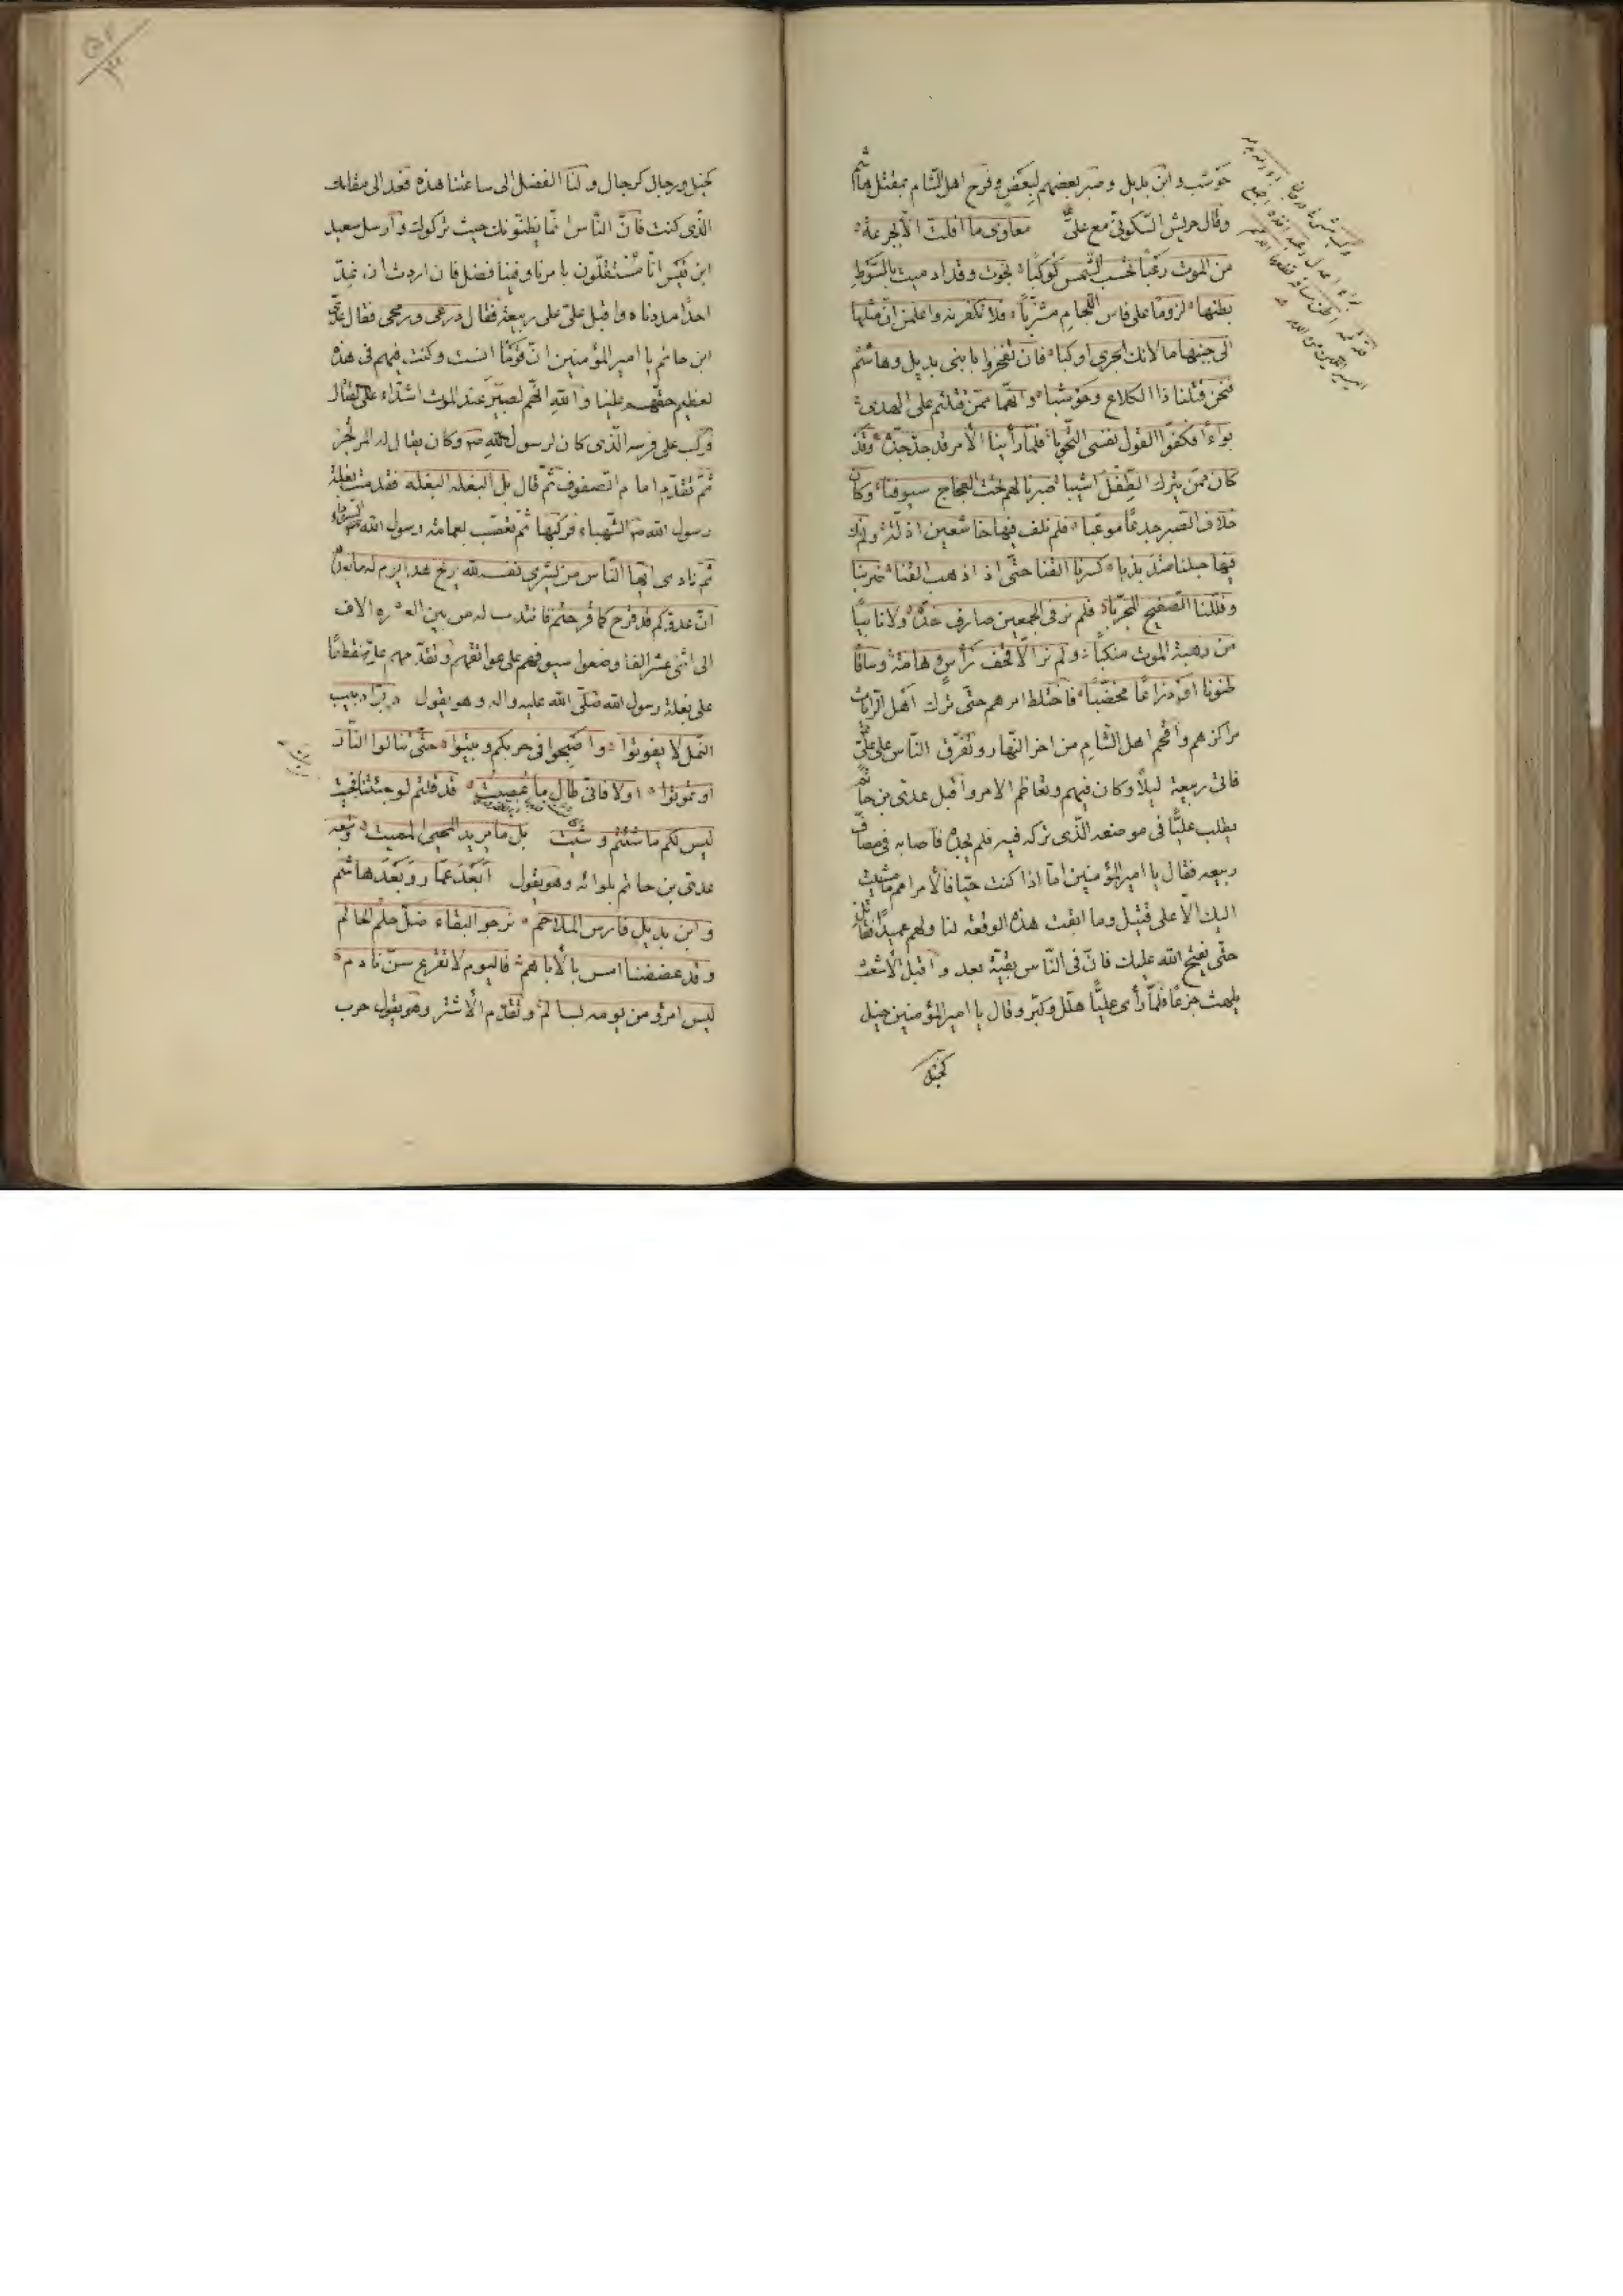 حوشب وابن بديل وصبر بعضهم لبعض وفرح اهل الشام بمقتل هاشم
وقال حريش السكونى مع على معاوى ما افلت الا بجرعة
من الموت رعبا تحسب الشمس كوكبا نجوت وقد ادميت بالسوط
بطنها لزوما على فاس اللجام مشذبا فلا تكفرنه واعلمن ان مثلها
الى جنبها ما لانك الجرى اوكبا فان تفخروا بابنى بديل وهاشم
فنحن قتلنا ذا الكلاع وحوشبا وانهما ممن قتلتم على الهدى
بواءا فكفوا القول ننسى التحوبا فلما راينا الأمر قد جد جده وقد
كان ممن يترك الطفل اشيبا صبرنا لهم تحت العجاج سيوفنا وكان
خلاف الصبر جدعا موعبا فلم نلف فيها خاشعين اذلة ولم يك
فيها حبلنا متذبذبا كسرنا القنا حتى اذا ذهب القنا ضربنا
وفللنا الصفيح المجربا فلم نر فى الجمعين صارف خده ولا ثانيا
من رهبة الموت منكبا ولم نر الا قحف رأس وهامة وساقا
طنونا او ذراعا مخضبا فاختلط امرهم حتى ترك اهل الرايات
مراكزهم واقحم اهل الشام من اخر النهار وتفرق الناس على على
فاتى ربيعة ليلا وكان فيهم وتعاظم الامر واقبل عدى بن حاتم
يطلب عليا فى موضعه الذى تركه فيه فلم يجده فاصابه فى مصاف
ربيعه فقال يا امير المؤمنين اما اذا كنت حيا فالأمر امم ما مشيت
اليك الا على قتيل وما ابقت هذه الوقعة لنا ولهم عميدا فقاتل
حتى يفتح الله عليك فان فى الناس بقية بعد واقبل الأشعث
يلهث جزعا فلما رأى عليا هلل وكبر وقال يا امير المؤمنين خيل
كخيل
كخيل ورجال كرجال ولنا الفضل الى ساعتنا هذه فعد الى مقامك
الذى كنت فان الناس انما يظنونك حيث تركوك وارسل سعيد
ابن قيس انا مشتغلون بامرنا وفينا فضل فان اردت ان نمد
احدا امددناه واقبل على على ربيعة فقال درعى ورمحى فقال عدى
ابن حاتم يا امير المؤمنين ان قوما انست وكنت فيهم فى هذه
لعظيم حقهم علينا والله انهم لصبر عند الموت اشداء على القتال
وركب على فرسه الذى كان لرسول الله ص وكان يقال له المرتجز
ثم تقدم امام الصفوف ثم قال بل البغله البغله فقدمت بغلة
رسول الله ص الشهباء فركبها ثم تعصب بعمامة رسول الله ص السوداء
ثم نادى ايها الناس من يشرى نفسه لله يربح هذا يوم له ما بعده
ان عدوكم قد قرح كما قرحتم فانتدب له من بين العشره الاف
الى اثنى عشر الفا وضعوا سيوفهم على عواتقهم وتقدمهم على منقطعا
على بغلة رسول الله صلى الله عليه واله وهو يقول دبوا دبيب
النمل لا يفوتوا واصبحوا فى حربكم وبيتوا حتى تنالوا الثار
او تموتوا اولا فانى طال ما عصيت قد قلتم لو جئتنا فجيت
ليس لكم ما شئتم وشيت بل ما يريد المحيى المميت وتبعه
عدى بن حاتم بلوائه وهو يقول ابعد عمار وبعد هاشم
وابن بديل فارس الملاحم نرجو البقاء ضل حلم الحالم
وقد عضضنا امس بالأباهم فاليوم لا نقرع سن نادم
ليس امرؤ من يومه بسالم وتقدم الأشتر وهو يقول حرب